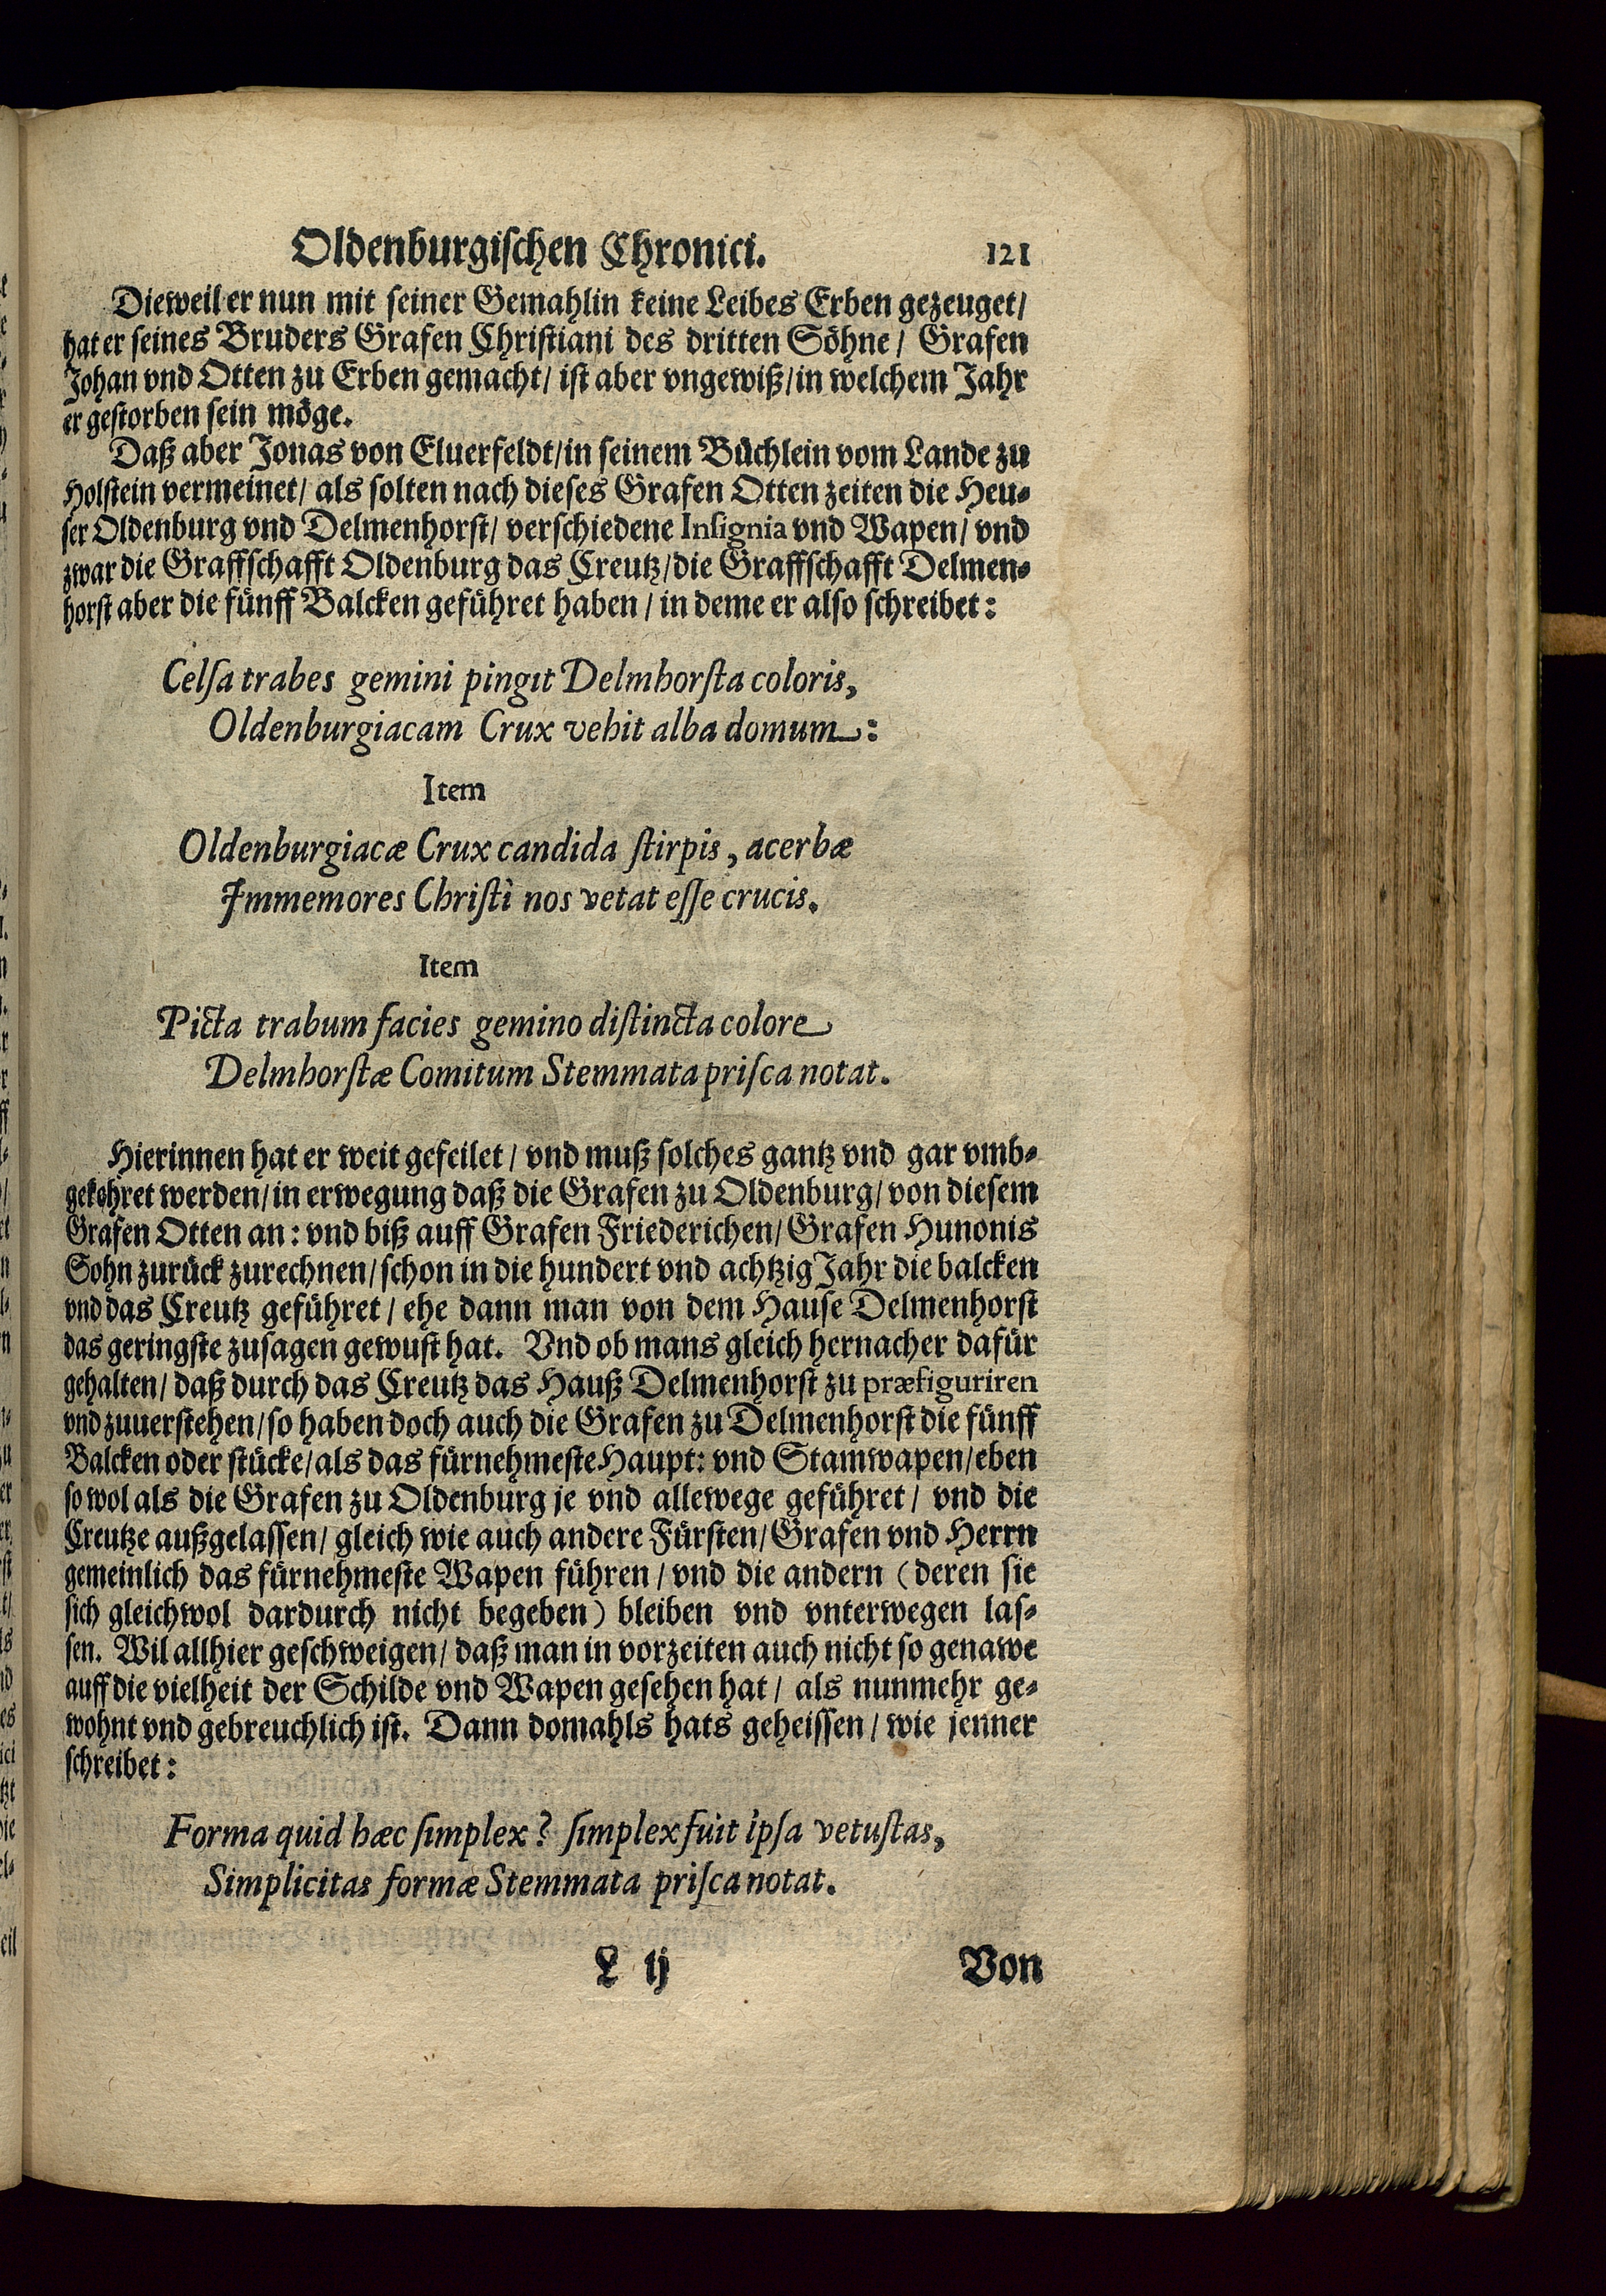 Oldenburgischen Chronici. 121
Dieweil er nun mit seiner Gemahlin keine Leibes Erben gezeuget/
hat er seines Bruders Grafen Christiani des dritten Söhne/ Grafen
Johan vnd Otten zu Erben gemacht/ ist aber vngewiß/ in welchem Jahr
er gestorben sein möge.
Daß aber Jonas von Eluerfeldt/ in seinem Büchlein vom Lande zu
Holstein vermeinet/ als solten nach dieses Grafen Otten zeiten die Heu-
ser Oldenburg vnd Delmenhorst/ verschiedene Insignia vnd Wapen/ vnd
zwar die Graffschafft Oldenburg das Creutz/ die Graffschafft Delmen-
horst aber die fünff Balcken geführet haben/ in deme er also schreibet:
Celsa trabes gemini pingit Delmhorsta coloris,
Oldenburgiacam Crux vehit alba domum:
Item
Oldenburgiacæ Crux candida stirpis, acerbæ
Immemores Christi nos vetat esse crucis.
Item
Picta trabum facies gemino distincta colore
Delmhorstæ Comitum Stemmata prisca notat.
Hierinnen hat er weit gefeilet/ vnd muß solches gantz vnd gar vmb-
gekehret werden/ in erwegung daß die Grafen zu Oldenburg/ von diesem
Grafen Otten an: vnd biß auff Grafen Friederichen/ Grafen Hunonis
Sohn zurück zurechnen/ schon in die hundert vnd achtzig Jahr die balcken
vnd das Creutz geführet/ ehe dann man von dem Hause Delmenhorst
das geringste zusagen gewust hat. Vnd ob mans gleich hernacher dafür
gehalten/ daß durch das Creutz das Hauß Delmenhorst zu præfiguriren
vnd zuuerstehen/ so haben doch auch die Grafen zu Delmenhorst die fünff
Balcken oder stücke/ als das fürnehmeste Haupt: vnd Stamwapen/ eben
so wol als die Grafen zu Oldenburg je vnd allewege geführet/ vnd die
Creutze außgelassen/ gleich wie auch andere Fürsten/ Grafen vnd Herrn
gemeinlich das fürnehmeste Wapen führen/ vnd die andern (deren sie
sich gleichwol dardurch nicht begeben) bleiben vnd vnterwegen las-
sen. Wil allhier geschweigen/ daß man in vorzeiten auch nicht so genawe
auff die vielheit der Schilde vnd Wapen gesehen hat/ als nunmehr ge-
wohnt vnd gebreuchlich ist. Dann domahls hats geheissen/ wie jenner
schreibet:
Forma quid hæc simplex? simplex fuit ipsa vetustas,
Simplicitas formæ Stemmata prisca notat.
L ij Von